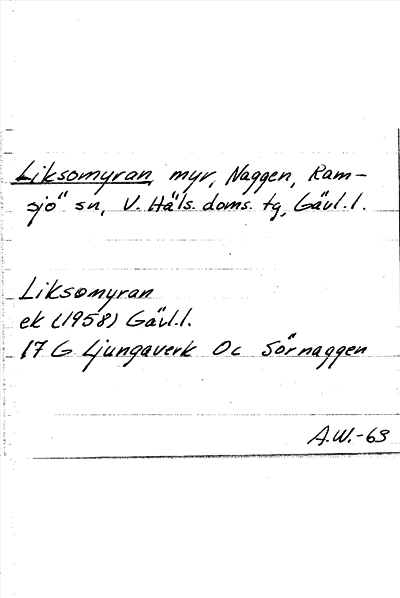 Liksomyran, myr, Naggen, Ram-
sjö sn, V. Häls. doms. tg, Gävl. l.
Liksomyran
ek (1958) Gävl. l.
17 G Ljungaverk Oc Sörnaggen
A.W.-63